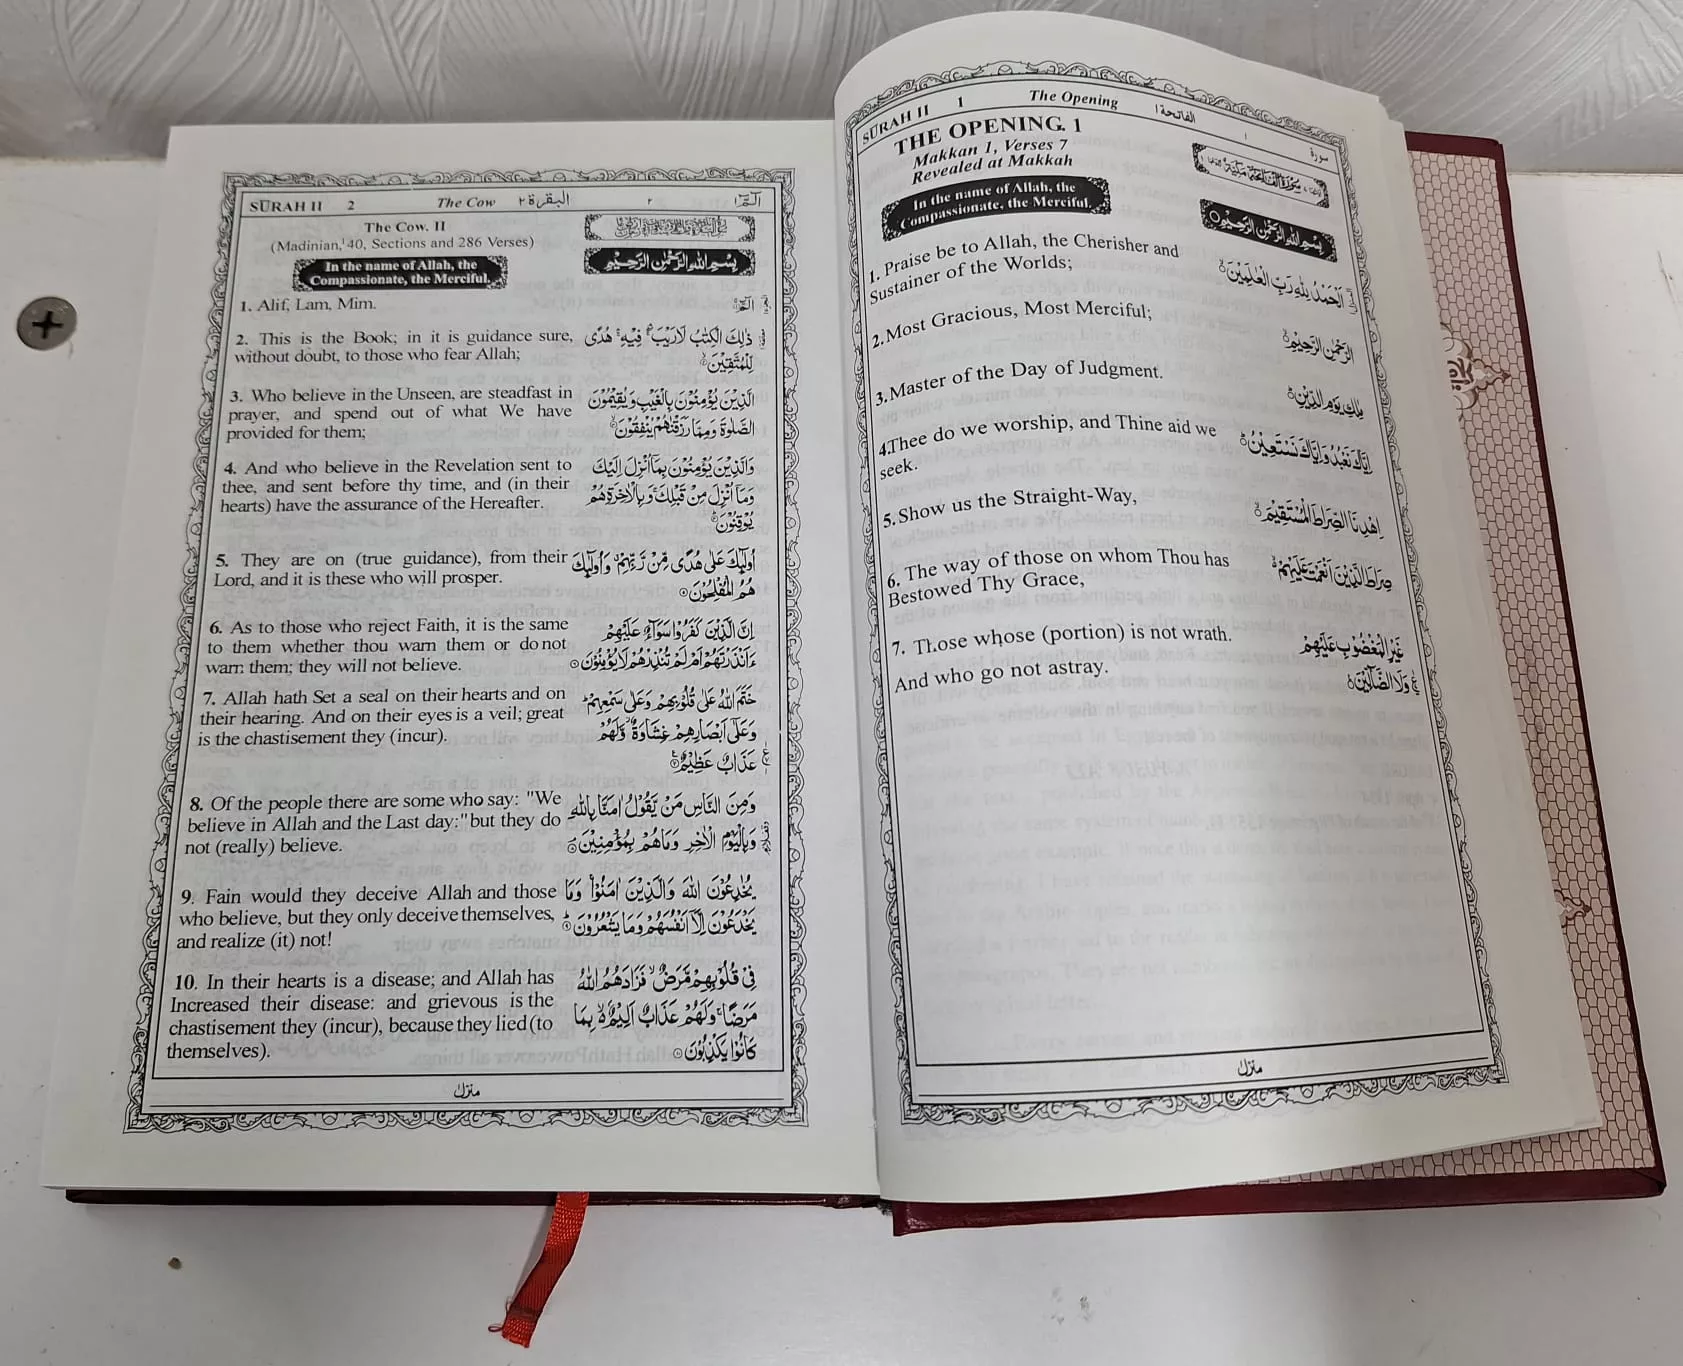 SURAH II 1 The Opening الفاتحة ١ ١ سورة
THE OPENING. 1
Makkan 1, Verses 7
Revealed at Makkah
In the name of Allah, the
Compassionate, the Merciful.
بِسْمِ اللهِ الرَّحْمٰنِ الرَّحِيْمِ
1. Praise be to Allah, the Cherisher and
Sustainer of the Worlds;
اَلْحَمْدُ لِلّٰهِ رَبِّ الْعٰلَمِيْنَ
2. Most Gracious, Most Merciful;
الرَّحْمٰنِ الرَّحِيْمِ
3. Master of the Day of Judgment.
مٰلِكِ يَوْمِ الدِّيْنِ
4Thee do we worship, and Thine aid we
seek.
اِيَّاكَ نَعْبُدُ وَاِيَّاكَ نَسْتَعِيْنُ
5. Show us the Straight-Way,
اِهْدِنَا الصِّرَاطَ الْمُسْتَقِيْمَ
6. The way of those on whom Thou has
Bestowed Thy Grace,
صِرَاطَ الَّذِيْنَ اَنْعَمْتَ عَلَيْهِمْ
7. Those whose (portion) is not wrath.
And who go not astray.
غَيْرِ الْمَغْضُوْبِ عَلَيْهِمْ
وَلَا الضَّآلِّيْنَ
منزل
SURAH II 2 The Cow البقرة ٢ ٢ الٓمّٓ ١
The Cow. II
(Madinian, 40, Sections and 286 Verses)
In the name of Allah, the
Compassionate, the Merciful.
بِسْمِ اللهِ الرَّحْمٰنِ الرَّحِيْمِ
1. Alif, Lam, Mim.
الٓمّٓ
2. This is the Book; in it is guidance sure,
without doubt, to those who fear Allah;
ذٰلِكَ الْكِتٰبُ لَا رَيْبَ فِيْهِ هُدًى
لِّلْمُتَّقِيْنَ
3. Who believe in the Unseen, are steadfast in
prayer, and spend out of what We have
provided for them;
الَّذِيْنَ يُؤْمِنُوْنَ بِالْغَيْبِ وَيُقِيْمُوْنَ
الصَّلٰوةَ وَمِمَّا رَزَقْنٰهُمْ يُنْفِقُوْنَ
4. And who believe in the Revelation sent to
thee, and sent before thy time, and (in their
hearts) have the assurance of the Hereafter.
وَالَّذِيْنَ يُؤْمِنُوْنَ بِمَآ اُنْزِلَ اِلَيْكَ
وَمَآ اُنْزِلَ مِنْ قَبْلِكَ وَبِالْاٰخِرَةِ هُمْ
يُوْقِنُوْنَ
5. They are on (true guidance), from their
Lord, and it is these who will prosper.
اُولٰٓئِكَ عَلٰى هُدًى مِّنْ رَّبِّهِمْ وَاُولٰٓئِكَ
هُمُ الْمُفْلِحُوْنَ
6. As to those who reject Faith, it is the same
to them whether thou warn them or do not
warn them; they will not believe.
اِنَّ الَّذِيْنَ كَفَرُوْا سَوَآءٌ عَلَيْهِمْ
ءَاَنْذَرْتَهُمْ اَمْ لَمْ تُنْذِرْهُمْ لَا يُؤْمِنُوْنَ
7. Allah hath Set a seal on their hearts and on
their hearing. And on their eyes is a veil; great
is the chastisement they (incur).
خَتَمَ اللّٰهُ عَلٰى قُلُوْبِهِمْ وَعَلٰى سَمْعِهِمْ
وَعَلٰٓى اَبْصَارِهِمْ غِشَاوَةٌ وَّلَهُمْ
عَذَابٌ عَظِيْمٌ
8. Of the people there are some who say: "We
believe in Allah and the Last day:" but they do
not (really) believe.
وَمِنَ النَّاسِ مَنْ يَّقُوْلُ اٰمَنَّا بِاللّٰهِ
وَبِالْيَوْمِ الْاٰخِرِ وَمَا هُمْ بِمُؤْمِنِيْنَ
9. Fain would they deceive Allah and those
who believe, but they only deceive themselves,
and realize (it) not!
يُخٰدِعُوْنَ اللّٰهَ وَالَّذِيْنَ اٰمَنُوْا وَمَا
يَخْدَعُوْنَ اِلَّآ اَنْفُسَهُمْ وَمَا يَشْعُرُوْنَ
10. In their hearts is a disease; and Allah has
Increased their disease: and grievous is the
chastisement they (incur), because they lied (to
themselves).
فِيْ قُلُوْبِهِمْ مَّرَضٌ فَزَادَهُمُ اللّٰهُ
مَرَضًا وَلَهُمْ عَذَابٌ اَلِيْمٌ بِمَا
كَانُوْا يَكْذِبُوْنَ
منزل